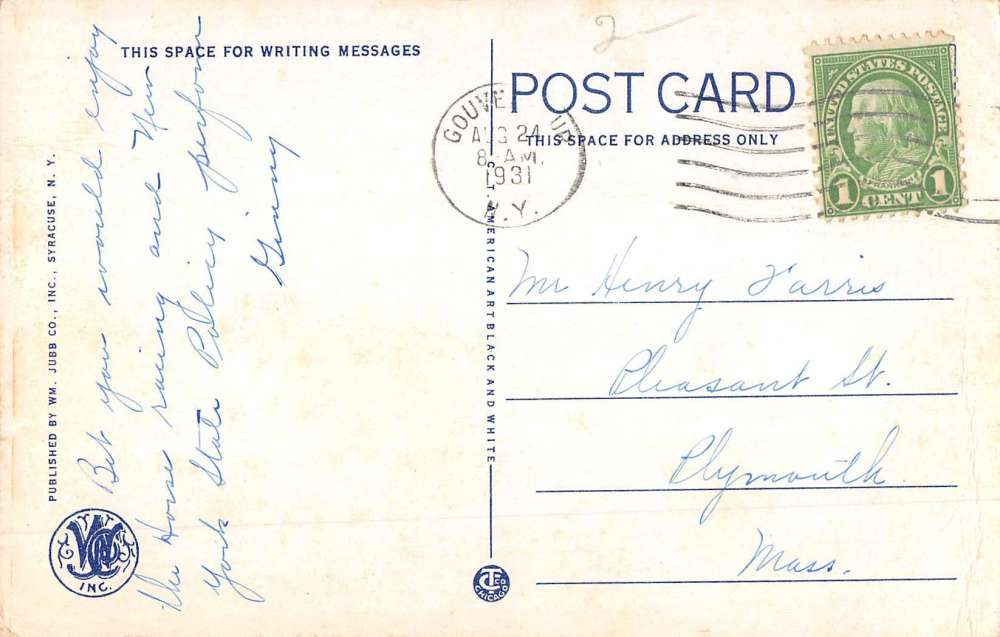 THIS SPACE FOR WRITING MESSAGES
Bet you would enjoy
the Horse racing and New
York State Policy perform
Ginny
PUBLISHED BY WM. JUBB CO., INC., SYRACUSE, N. Y.
INC.
2-
POST CARD
THIS SPACE FOR ADDRESS ONLY
AUG 24
8 AM.
1931
N.Y.
AMERICAN ART BLACK AND WHITE
CHICAGO
UNITED STATES POSTAGE
FRANKLIN
1 CENT 1
Mr Henry Farris
Pleasant St.
Plymouth
Mass.